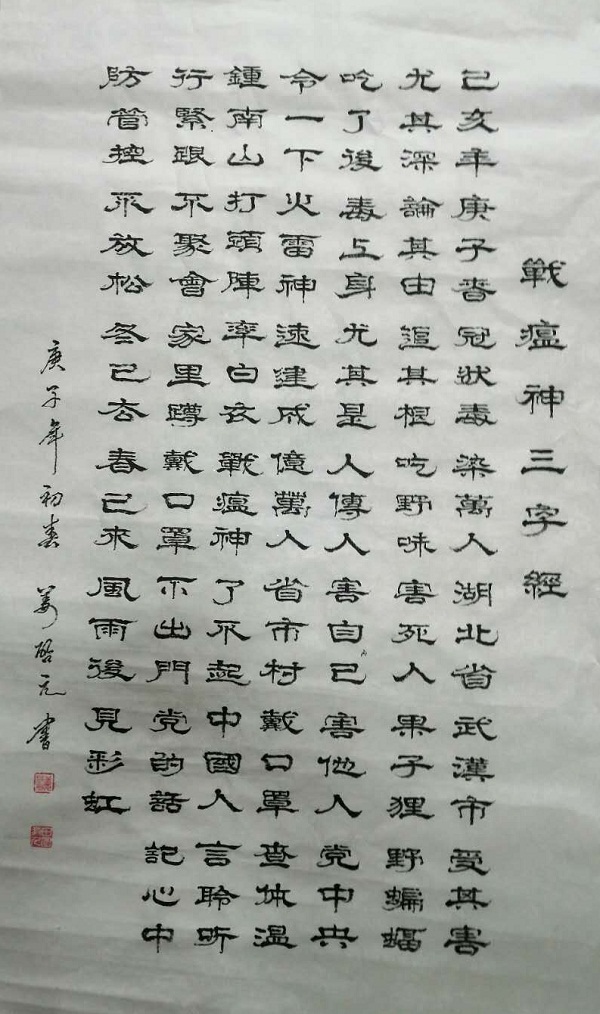 戰瘟神三字經
己亥年 庚子春 冠狀毒 染萬人 湖北省 武漢市 受其害
尤其深 論其由 追其根 吃野味 害死人 果子狸 野蝙蝠
吃了後 毒上身 尤其是 人傳人 害自己 害他人 党中央
令一下 火雷神 速建成 億萬人 省市村 戴口罩 查体溫
鍾南山 打頭陣 率白衣 戰瘟神 了不起 中國人 言聆听
行緊跟 不聚會 家里蹲 戴口罩 不出門 党的話 記心中
防管控 不放松 冬已去 春已來 風雨後 見彩虹
庚子年初春 姜啓元書